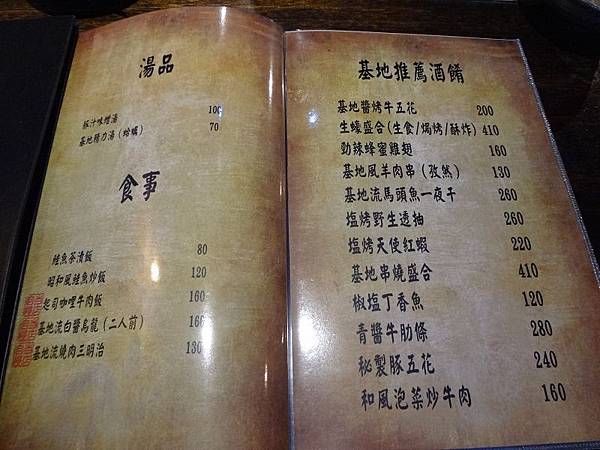 湯品
豚汁味增湯 100
基地精力湯(蛤蠣) 70
食事
鮭魚茶漬飯 80
昭和風鮭魚炒飯 120
起司咖哩牛肉飯 160
基地流白醬烏龍(二人前) 160
基地流燒肉三明治 130
基地推薦酒餚
基地醬烤牛五花 200
生蠔盛合(生食/焗烤/酥炸) 410
勁辣蜂蜜雞翅 160
基地風羊肉串(孜然) 130
基地流馬頭魚一夜干 260
塩烤野生透抽 260
塩烤天使紅蝦 220
基地串燒盛合 410
椒塩丁香魚 120
青醬牛肋條 280
秘製豚五花 240
和風泡菜炒牛肉 160